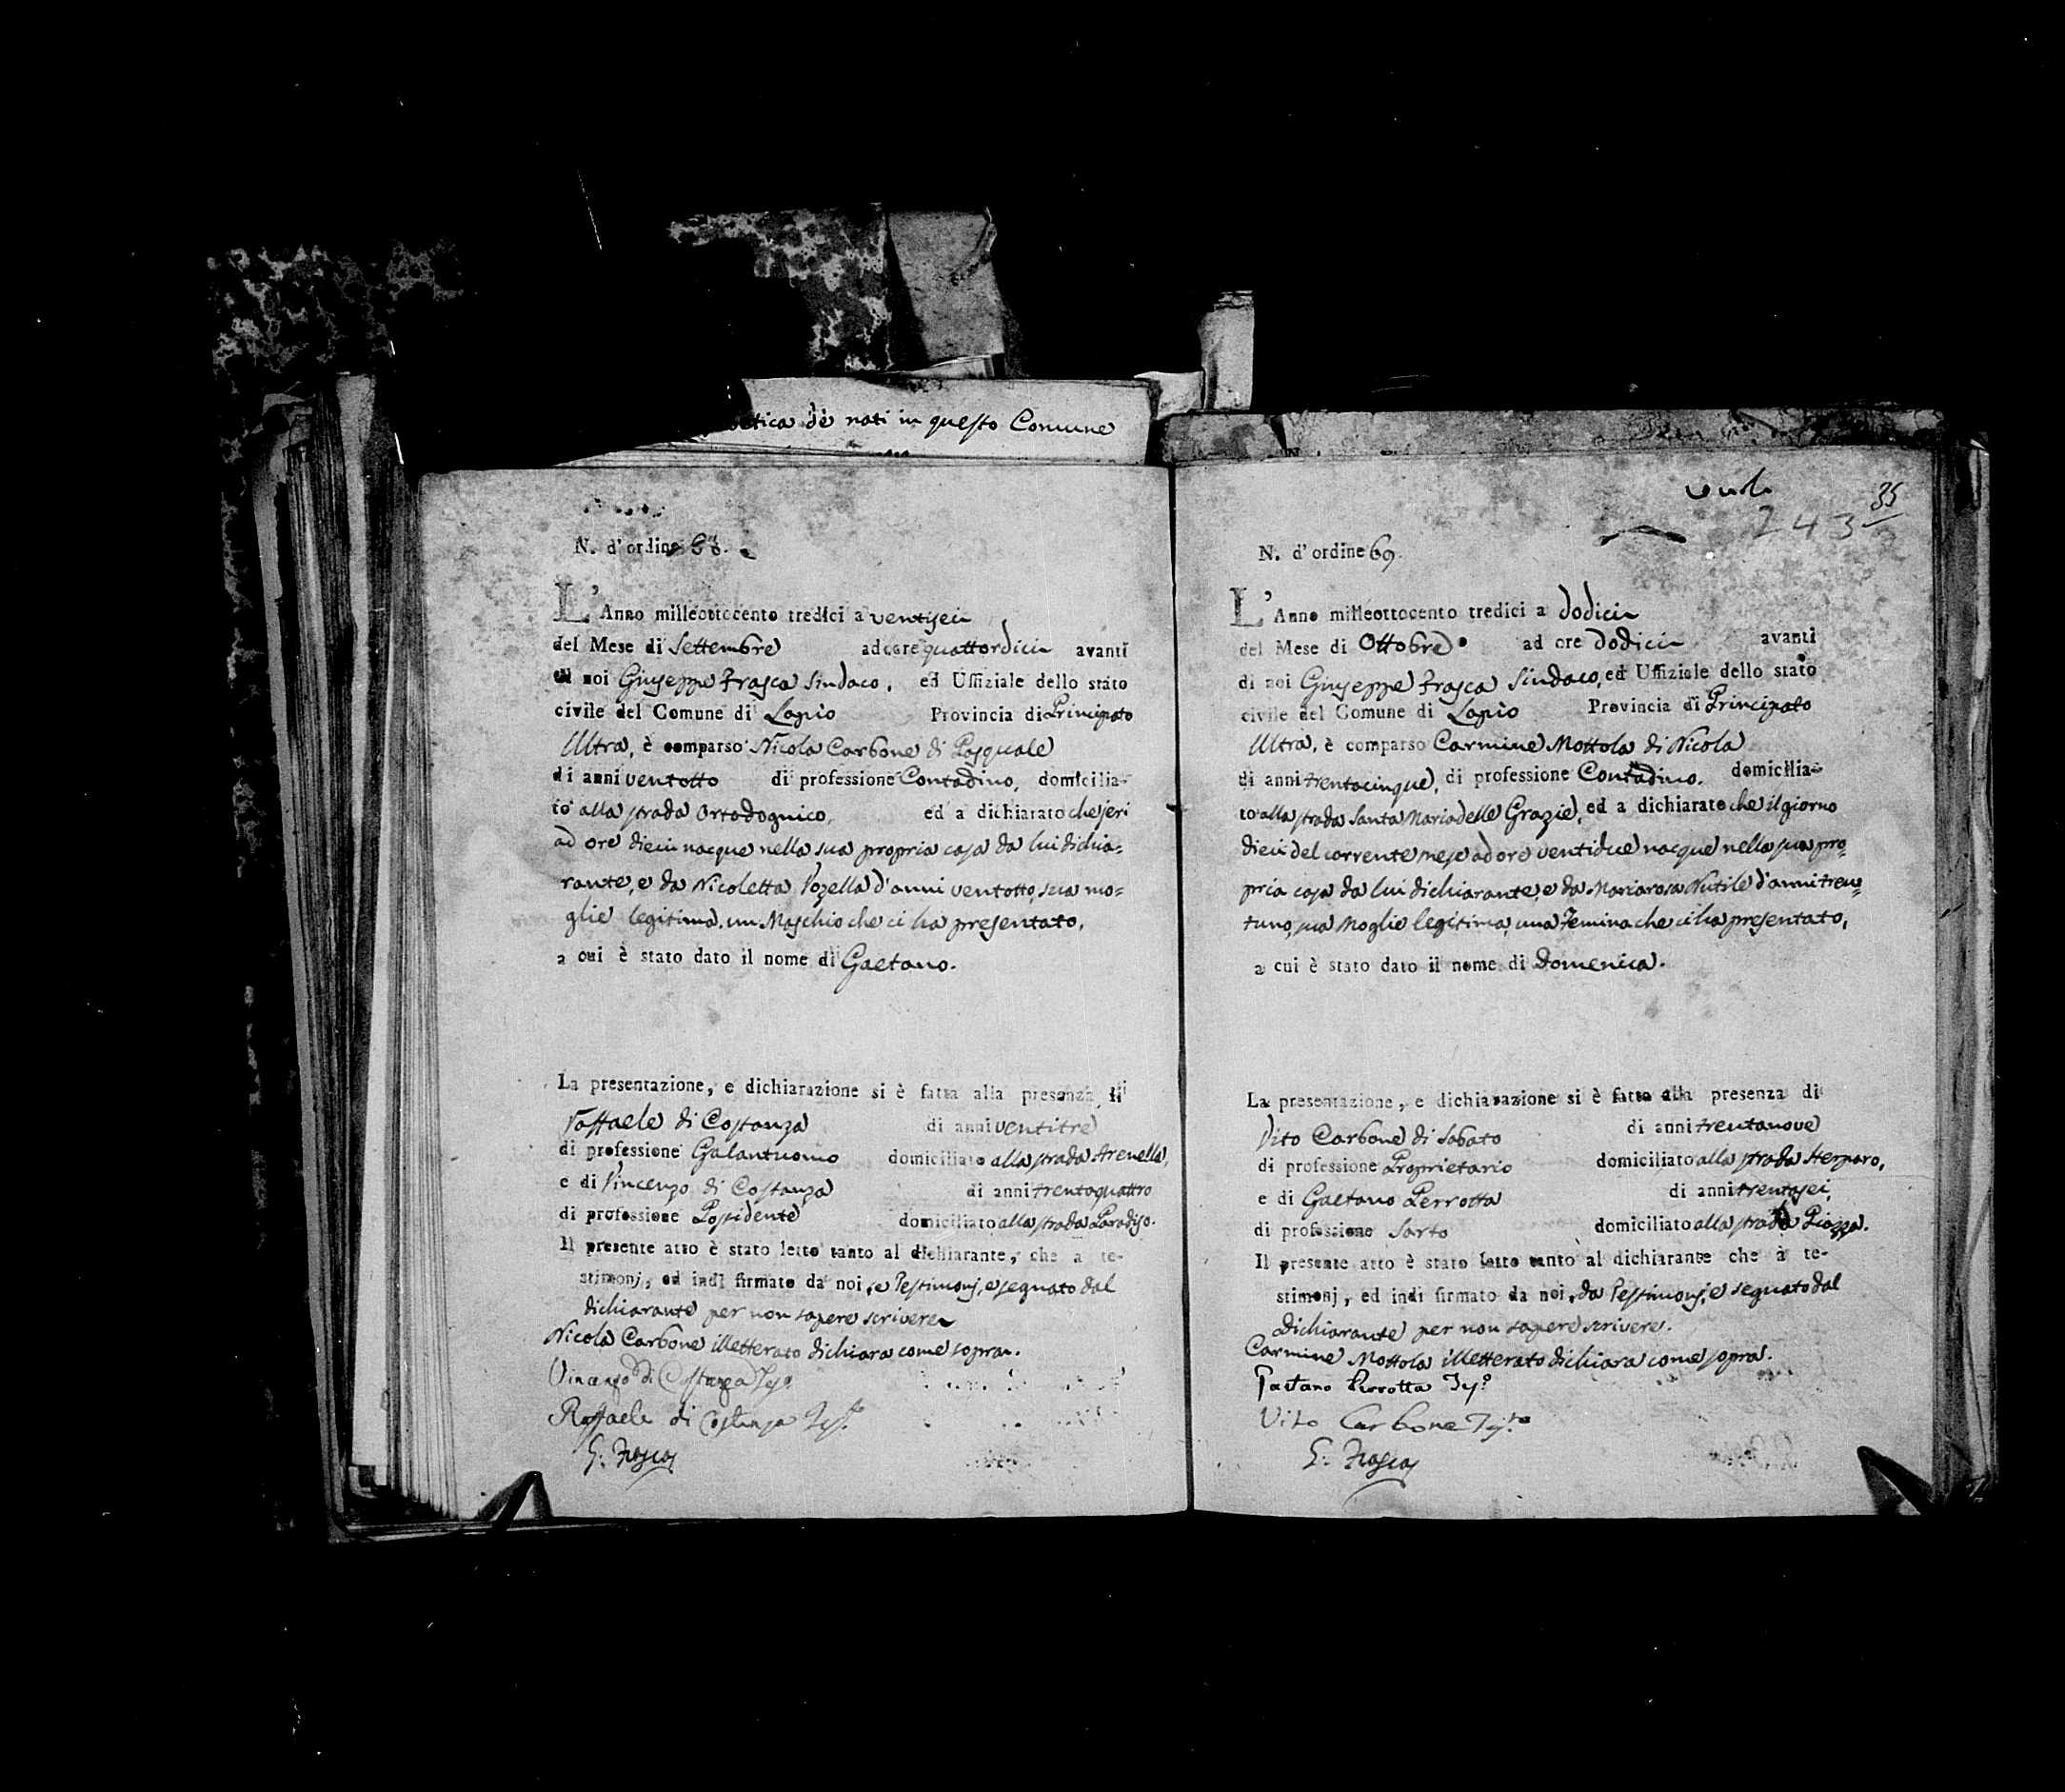 de nati in questo Comune
N. d'ordine 68.
L'Anno milleottocento tredici a ventisei
del Mese di Settembre ad ore quattordici avanti
di noi Giuseppe Frasca Sindaco, ed Uffiziale dello stato
civile del Comune di Lapio Provincia di Principato
Ultra, è comparso Nicola Carbone di Pasquale
di anni ventotto di professione Contadino, domicilia-
to alla strada Ortodognico, ed a dichiarato che jeri
ad ore dieci nacque nella sua propria casa da lui dichia-
rante, e da Nicoletta Vozella d'anni ventotto, sua mo=
glie legitima, un Maschio che ci ha presentato,
a cui è stato dato il nome di Gaetano.
La presentazione, e dichiarazione si è fatta alla presenza di
Raffaele di Costanza di anni ventitre
di professione Galantuomo domiciliato alla strada Arenella,
e di Vincenzo di Costanza di anni trentaquattro
di professione Possidente domiciliato alla strada Paradiso.
Il presente atto è stato letto tanto al dichiarante, che a te-
stimonj, ed indi firmato da noi, e Testimonj, e segnato dal
dichiarante per non sapere scrivere
Nicola Carbone illetterato dichiara come sopra.
Vincenzo di Costanza Tes.o
Raffaele di Costanza Tes.o
G. Frasca
35
243
N. d'ordine 69.
L'Anno milleottocento tredici a dodici
del Mese di Ottobre ad ore dodici avanti
di noi Giuseppe Frasca Sindaco, ed Uffiziale dello stato
civile del Comune di Lapio Provincia di Principato
Ultra, è comparso Carmine Mottola di Nicola
di anni trentacinque, di professione Contadino, domicilia-
to alla strada Santa Maria delle Grazie, ed a dichiarato che il giorno
dieci del corrente mese ad ore ventidue nacque nella sua pro=
pria casa da lui dichiarante, e da Mariarosa Nutile d'anni tren=
tuno, sua Moglie legitima, una Femina che ci ha presentato,
a cui è stato dato il nome di Domenica.
La presentazione, e dichiarazione si è fatta alla presenza di
Vito Carbone di Sabato di anni trentanove
di professione Proprietario domiciliato alla strada Sterparo,
e di Gaetano Perrotta di anni trentasei,
di professione Sarto domiciliato alla strada Piazza.
Il presente atto è stato letto tanto al dichiarante che à te-
stimonj, ed indi firmato da noi, da Testimonj, e segnato dal
Dichiarante per non sapere scrivere.
Carmine Mottola illetterato dichiara come sopra.
Gaetano Perrotta Tes.o
Vito Carbone Tes.to
G. Frasca